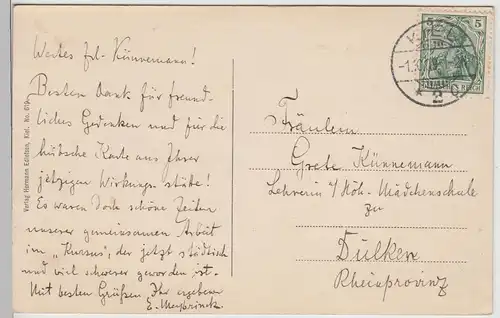 Wertes Frl. Künnemann!
Besten Dank für freund-
liches Gedenken und für die
hübsche Karte aus Ihrer
jetzigen Wirkungsstätte!
Es waren doch schöne Zeiten
unserer gemeinsamen Arbeit
im „Kursus", der jetzt städtisch
und viel schwerer geworden ist.
Mit besten Grüßen Ihr ergebener
Verlag Hermann Edlefsen, Kiel. No. 619.
KIEL
5
REICH
Fräulein
Grete Künnemann
Lehrerin a/Höh. Mädchenschule
zu
Dülken
Rheinprovinz